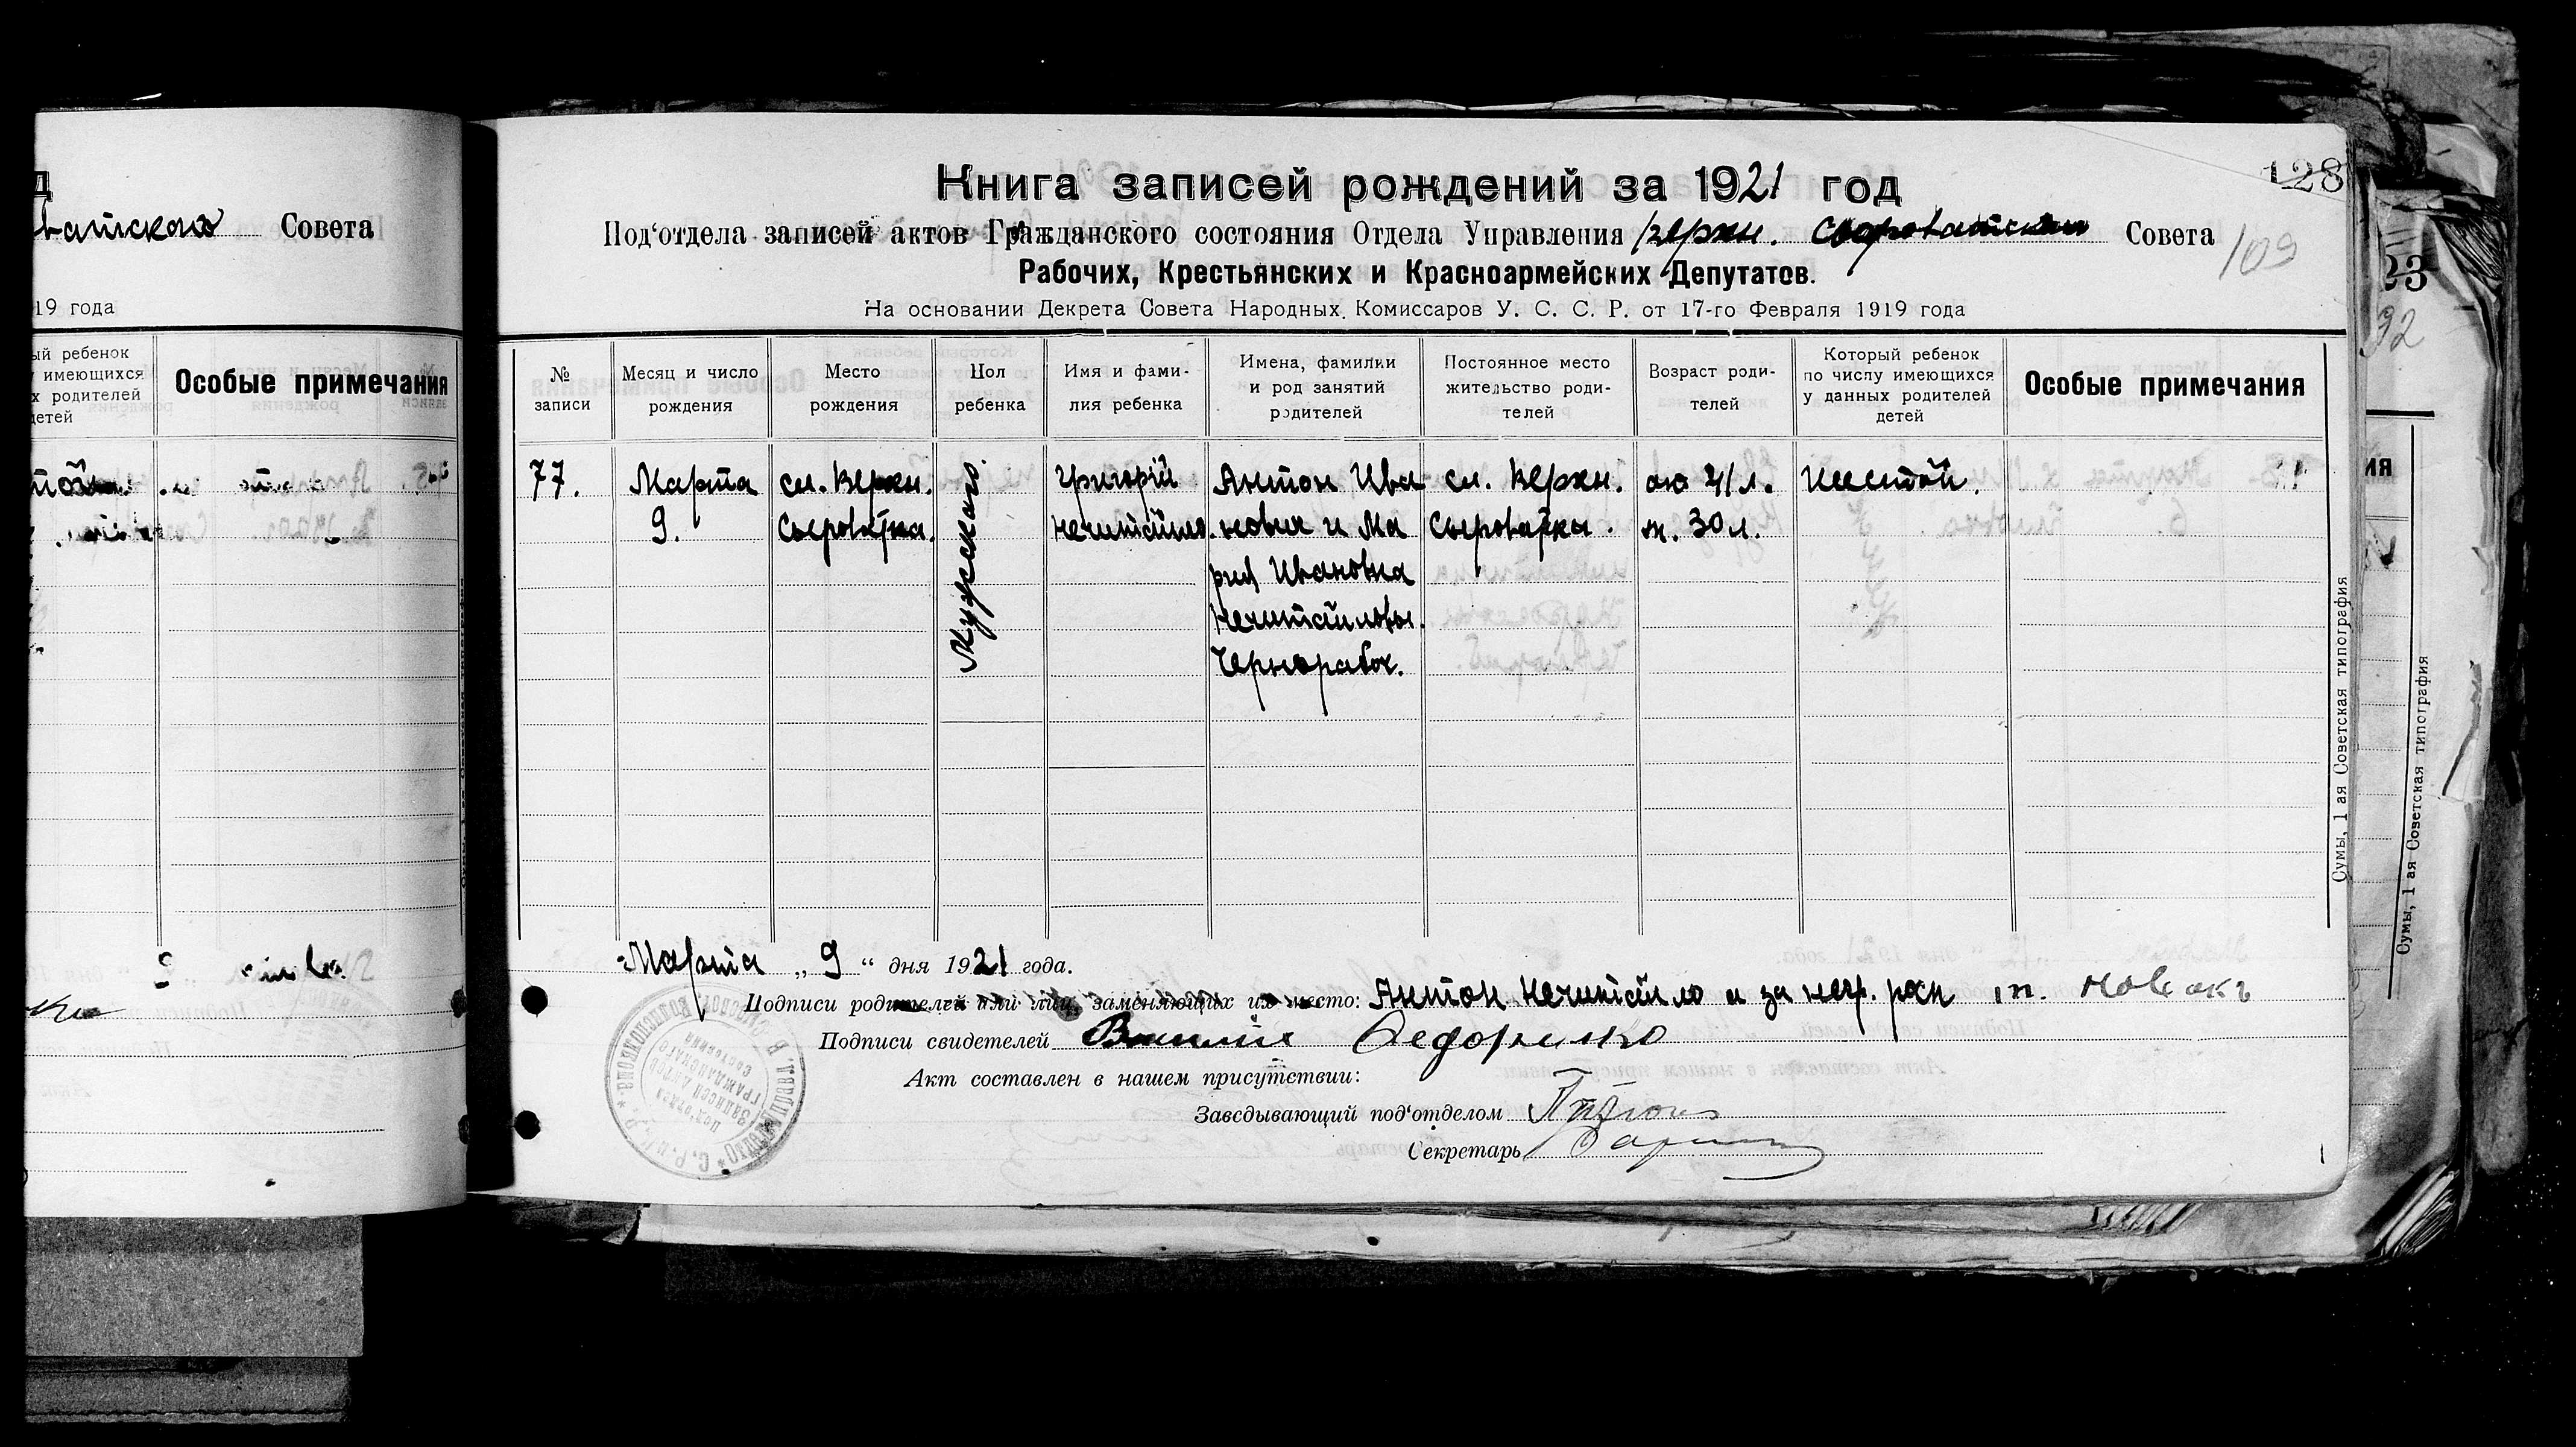 д
Совета
19 года
ый ребенок
у имеющихся
х родителей
детей
Особые примечания
128
Книга записей рождений за 1921 год
Под‘отдела записей актов Гражданского состояния Отдела Управления Верхн. Сыроватского Совета
109
Рабочих, Крестьянских и Красноармейских Депутатов.
На основании Декрета Совета Народных Комиссаров У. С. С. Р. от 17-го Февраля 1919 года
№
записи
Месяц и число
рождения
Место
рождения
Пол
ребенка
Имя и фами-
лия ребенка
Имена, фамилии
и род занятий
родителей
Постоянное место
жительство роди-
телей
Возраст роди-
телей
Который ребенок
по числу имеющихся
у данных родителей
детей
Особые примечания
77.
Марта
9.
сл. Верхн.
Сыроватка.
Мужскаго
Григорій
Нечитайло.
Антон Ива
нович и Ма
рия Ивановна
Нечитайловы.
Чернорабоч.
сл. Верхн.
Сыроватка.
41 л.
ж. 30 л.
Шестой.
Марта „ 9 “ дня 1921 года.
Подписи родителей или лиц, заменяющих их место: Антон Нечитайло и за негр. рос
Подписи свидетелей Федоренко
Акт составлен в нашем присутствии:
Заведывающий под‘отделом
Секретарь
Сумы, 1 ая Советская типография
23
32
ия
Сумы, 1 ая Советская типография